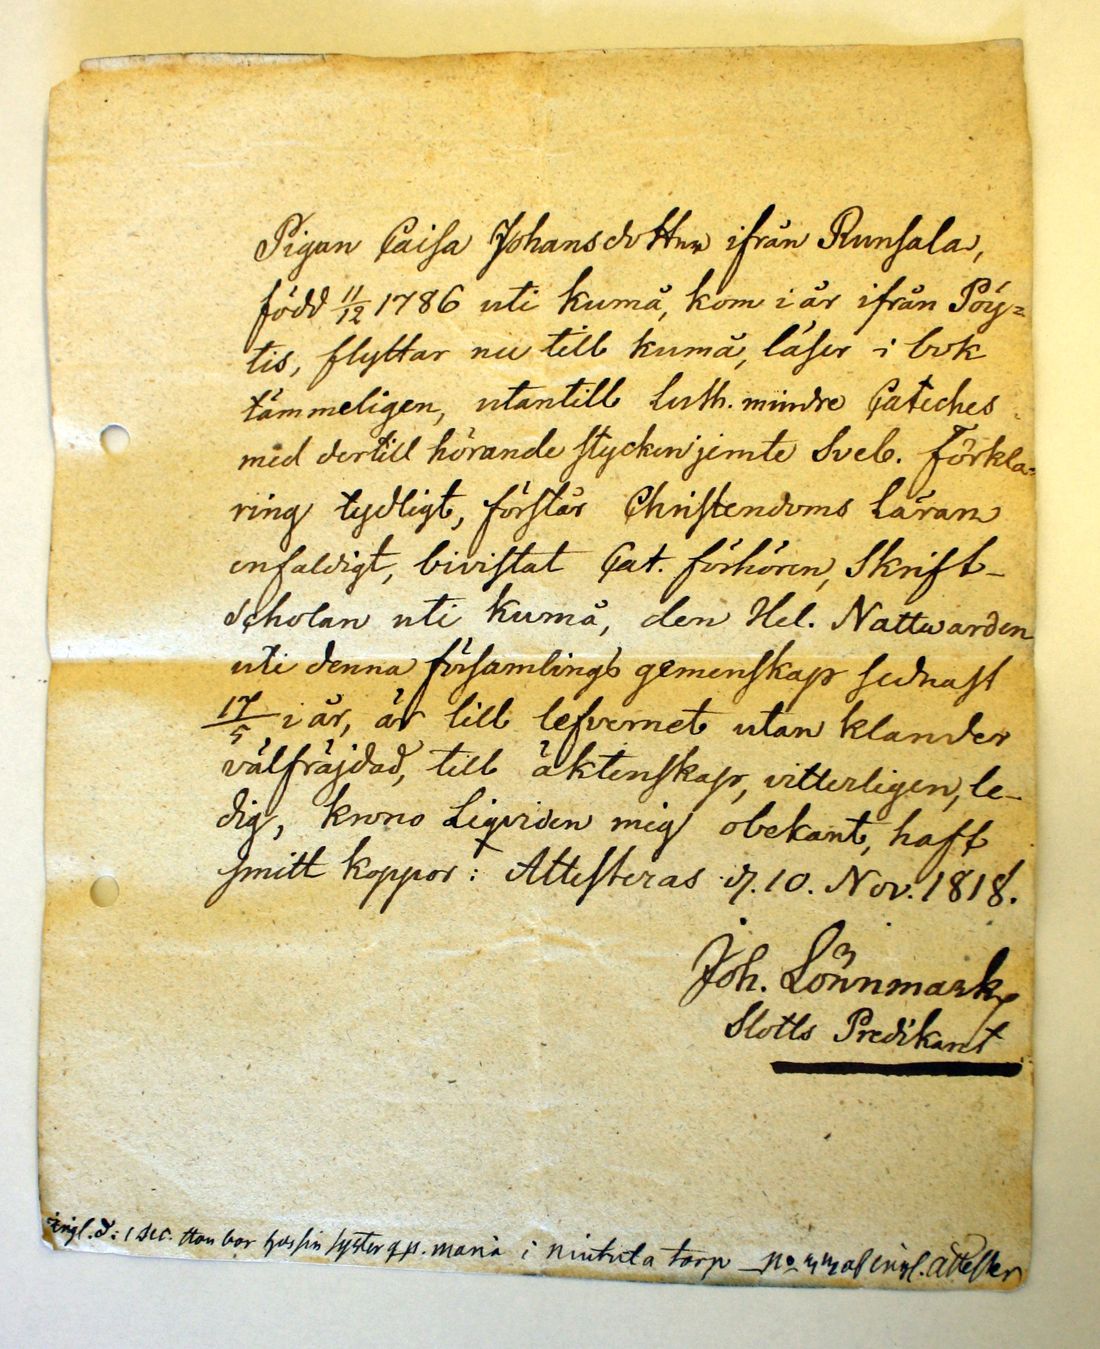 Pigan Caisa Johansdotter ifrån Runsala,
född 11/12 1786 uti kumå, kom i år ifrån Pöy=
tis, flyttar nu till kumå, läser i bok
tämmeligen, utantill Luth. mindre Cateches
med dertill hörande stycken jemte Sveb. Förkla=
ring tydligt, förstår Christendoms Läran
enfaldigt, bivistat Cat. förhören, Skrift-
scholan uti kumå, den Hel. Nattwarden
uti denna församlings gemenskap sednast
17/5 i år, är till lefvernet utan klander
välfräjdad, till äktenskap, vitterligen, le-
dig, krono Liqviden mig obekant, haft
smitt koppor: Attesteras d. 10. Nov. 1818.
Joh. Lönnmark
Slotts Predikant
ingl. d: 1 Dec. Hon bor hos sin syster q.p. maria i niuttula torp No af ingl. attester